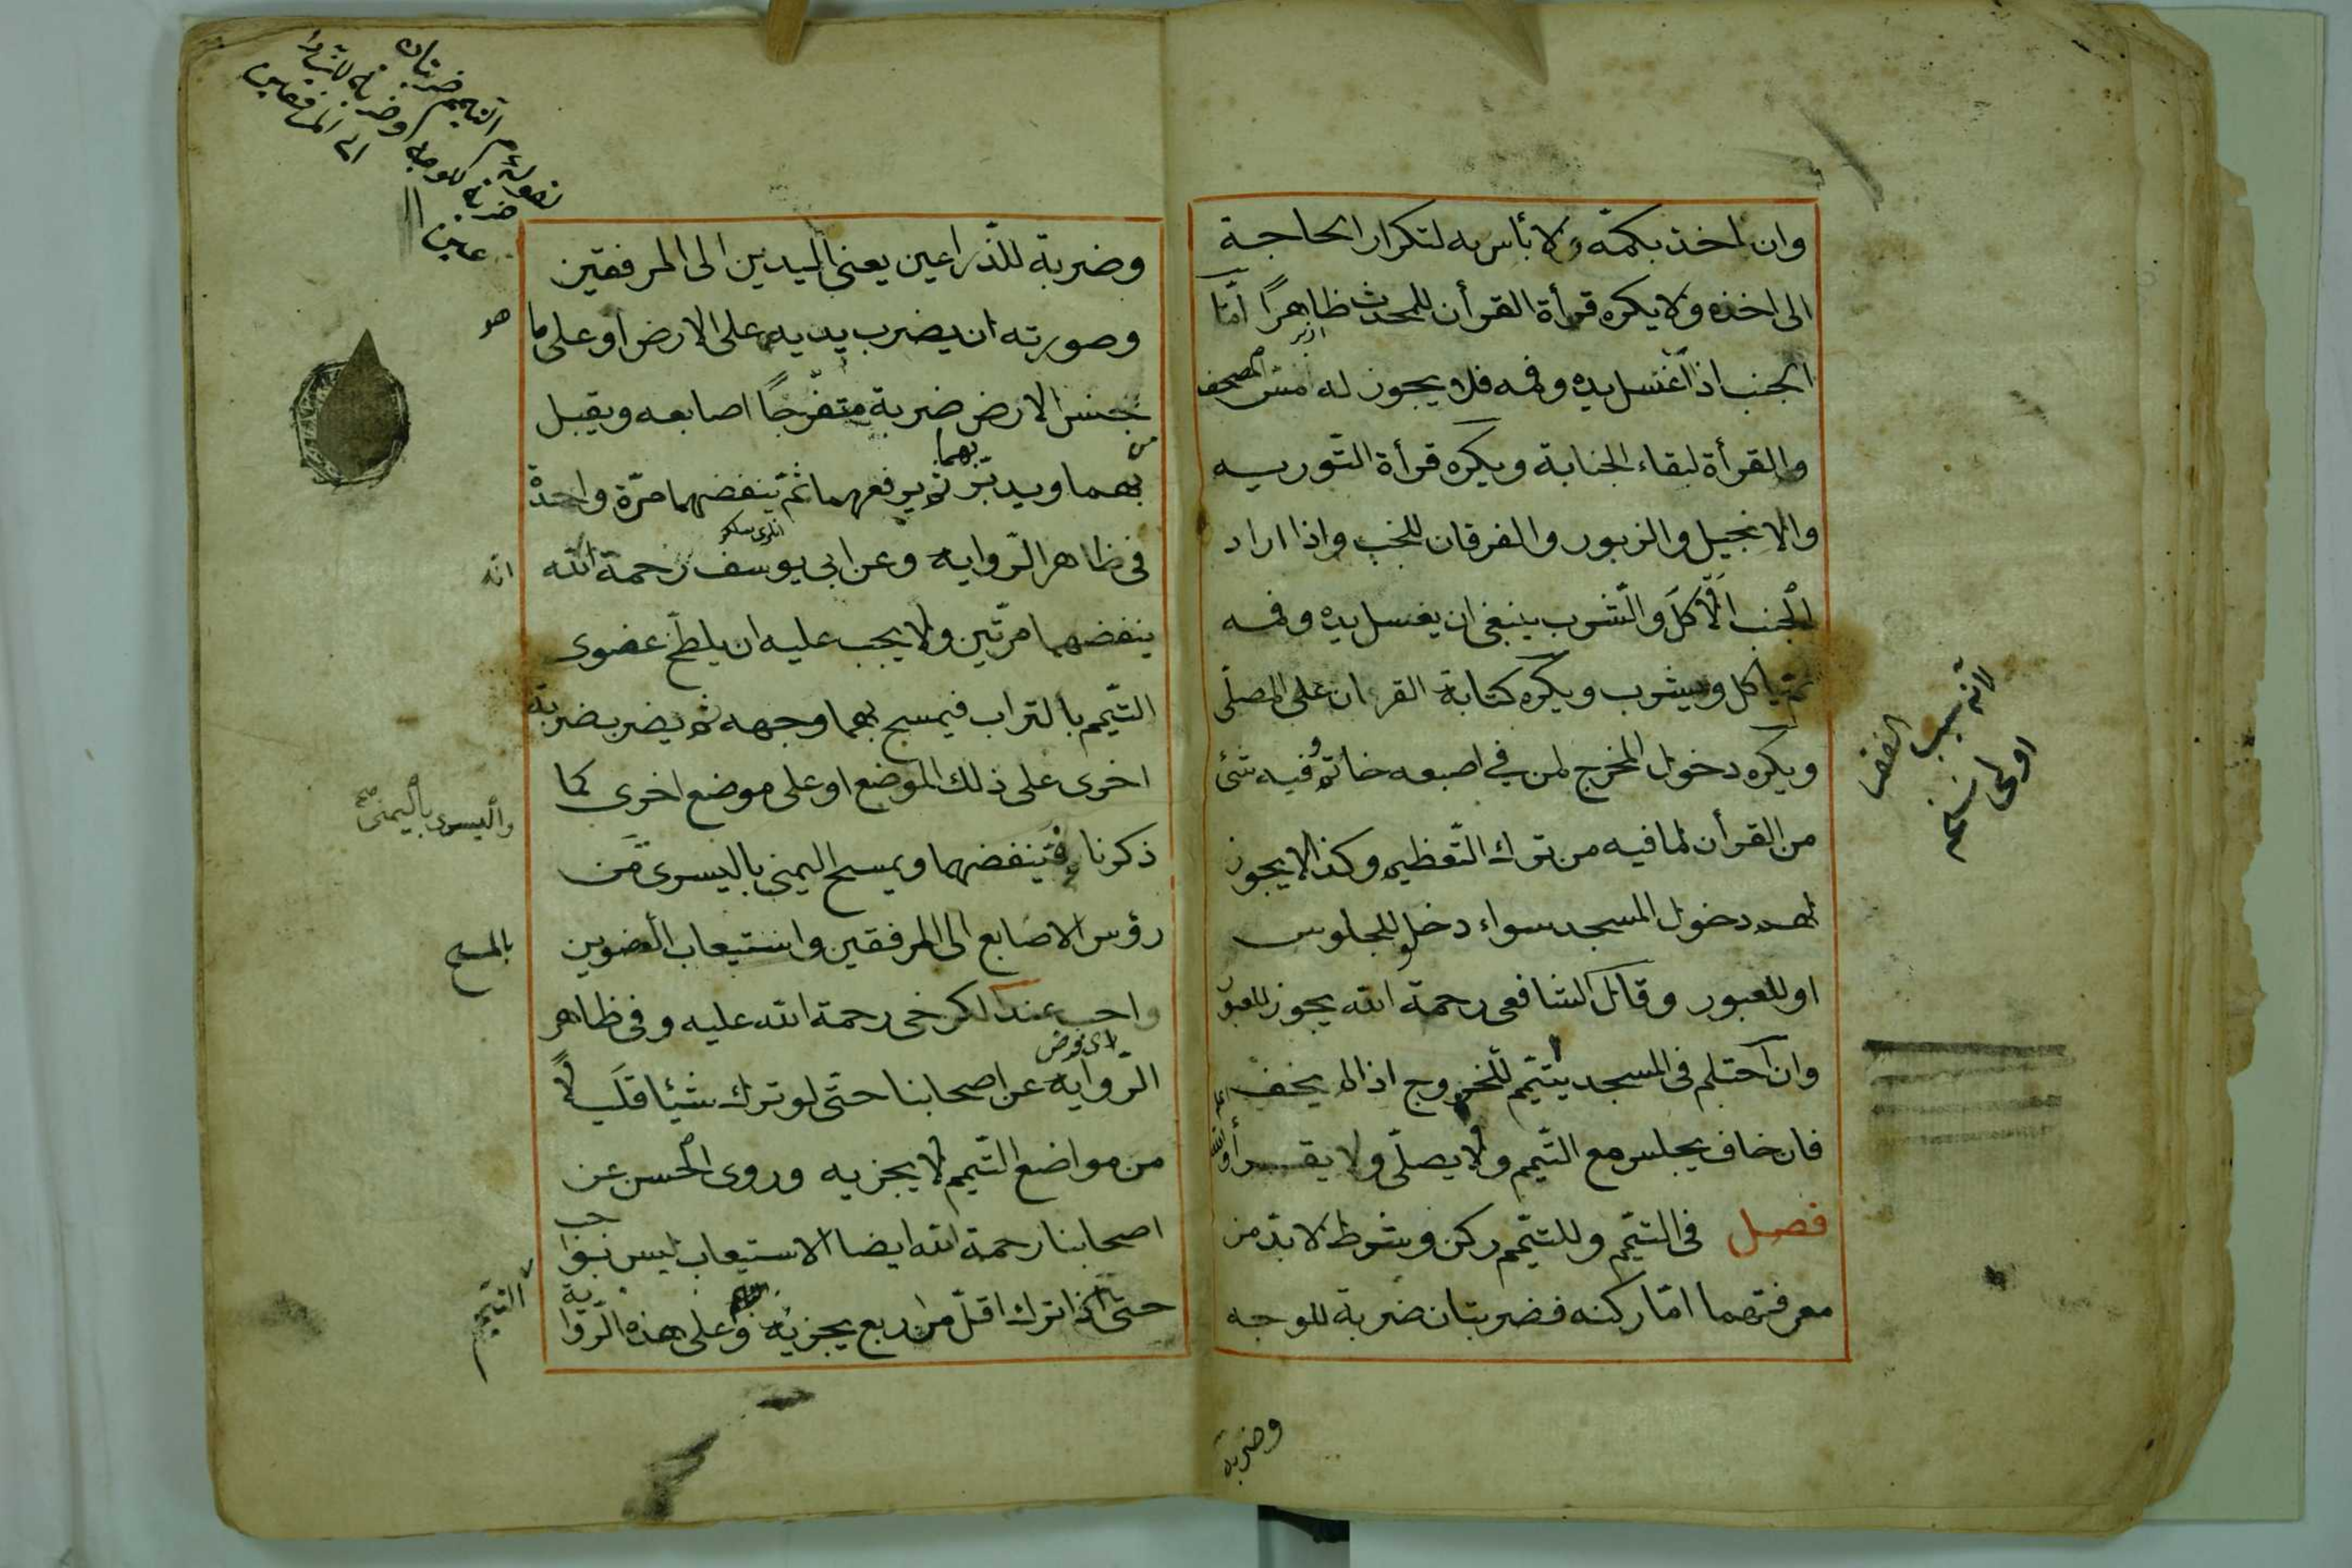 وان اخذ بكمّه ولا بأس به لتكرار الحاجة
الى اخذه ولا يكره قرأة القرأن للمحدث ظاهرًا امّا
الجنب اذا غسل يده وفمه فلا يجوز له مسّ المصحف
والقرأة لبقاء الجنابة ويكره قرأة التورية
والانجيل والزبور والفرقان للجنب واذا اراد
الجنب الاكل والشرب ينبغى ان يغسل يده وفمه
ثمّ ياكل ويشرب ويكره كتابة القران على المصلّى
ويكره دخول المخرج لمن في اصبعه خاتم وفيه شئ
من القرأن لما فيه من ترك التّعظيم وكذا لا يجوز
لهم دخول المسجد سواء دخل للجلوس
او للعبور وقال الشافعى رحمة الله يجوز للعبور
وان احتلم فى المسجد يتيّمم للخروج اذا لم يخف
فان خاف يجلس مع التّيمم ولا يصلّى ولا يقرأ
فصل فى التيمّم وللتيمّم ركن وشرط لا بدّ من
معرفتهما امّا ركنه فضربتان ضربة للوجه
وضربة
لانه سبب الفقر
وضربة للذّراعين يعنى اليدين الى المرفقين
وصورته ان يضرب يديه على الارض او على ما هو
من جنس الارض ضربة متفرّجًا اصابعه ويقبل
بهما ويدبّر بهما ثم يرفعهما ثمّ ينفضهما مرّة واحدة
فى ظاهر الرّواية وعن ابى يوسف رحمة الله انه
ينفضهما مرّتين ولا يجب عليه ان يلطّخ عضوى
التّيمم بالتراب فيمسح بهما وجهه ثم يضرب ضربة
اخرى على ذلك الموضع او على موضع اخرى كما
ذكرنا فينفضهما ويمسح اليمنى باليسرى واليسرى باليمنى صح من
رؤس الاصابع الى المرفقين واستيعاب العضوين بالمسح
واجب عند الكرخى رحمة الله عليه وفى ظاهر
اى فرض
الرّواية عن اصحابنا حتّى لو ترك شيئا قليلًا
من مواضع التّيمم لا يجزيه وروى الحسن عن
اصحابنا رحمة الله ايضا الاستيعاب ليس بواجب
حتى اذا ترك اقلّ من ربع يجزيه وعلى هذه الرّواية
التيمم ضربتان
ضربة للوجه وضربة للذراعين
الى المرفقين